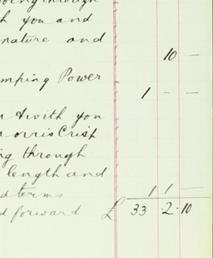 through
h you and
nature and
10 –
mping Power
1 – –
with you
orris Crisp
ng through
length and
d terms
1 1 –
d forward £ 33 . 2 . 10